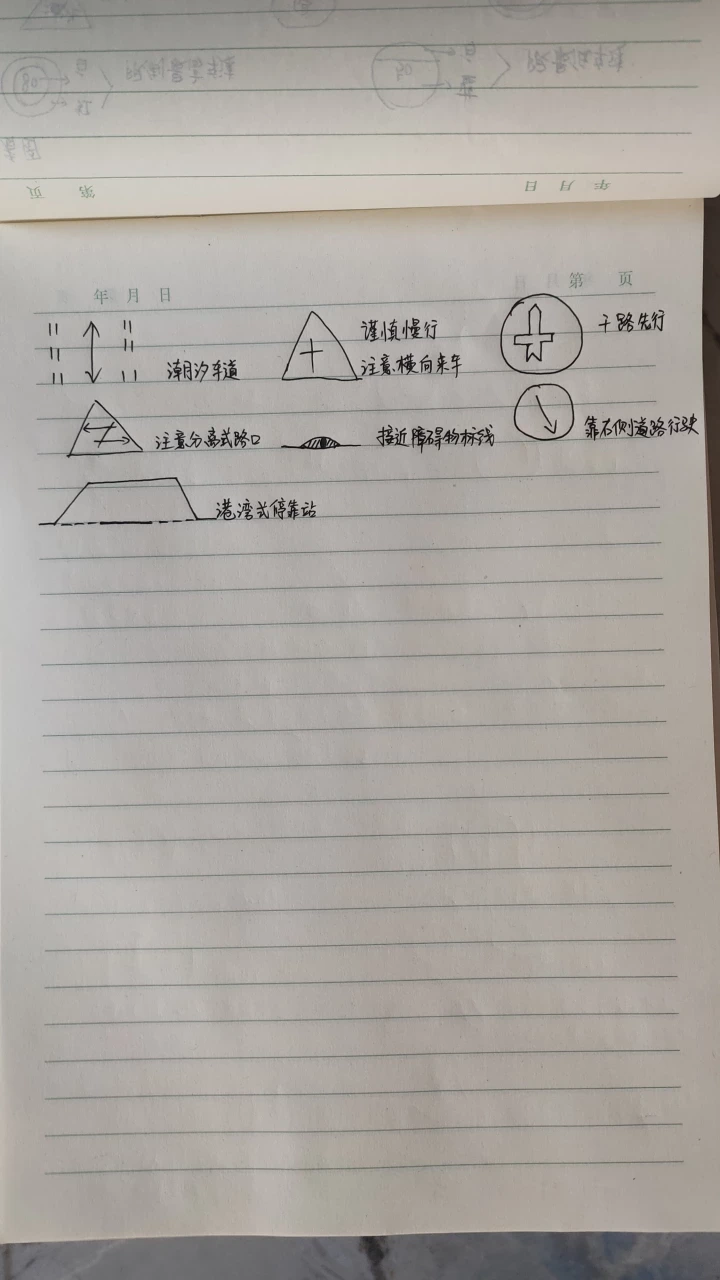 年 月 日 第 页
潮汐车道
谨慎慢行
注意横向来车
干路先行
注意分离式路口
接近障碍物标线
靠右侧道路行驶
港湾式停靠站